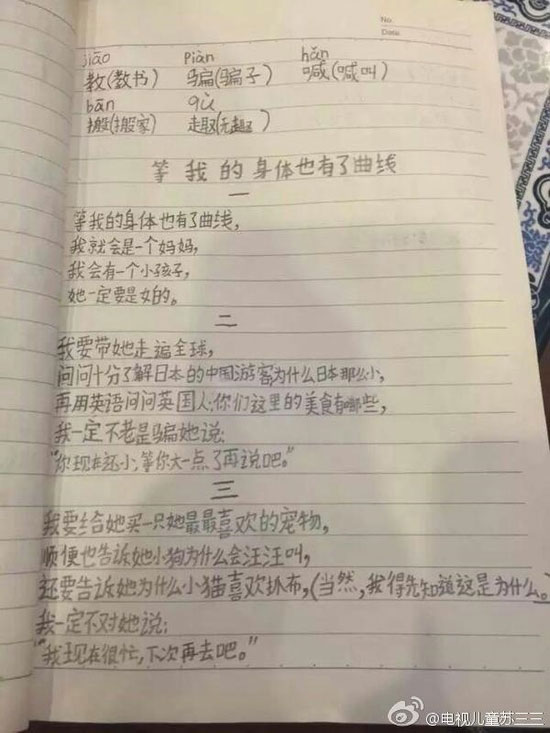 No.
Date
jiāo piàn hǎn
教(教书) 骗(骗子) 喊(喊叫)
bān qù
搬(搬家) 趣(无趣)
等我的身体也有了曲线
一
等我的身体也有了曲线,
我就会是一个妈妈,
我会有一个小孩子,
她一定要是女的。
二
我要带她走遍全球,
问问十分了解日本的中国游客为什么日本那么小,
再用英语问问英国人:你们这里的美食有哪些,
我一定不老是骗她说:
“你现在还小,等你大一点了再说吧。”
三
我要给她买一只她最最喜欢的宠物,
顺便也告诉她小狗为什么会汪汪叫,
还要告诉她为什么小猫喜欢抓布,(当然,我得先知道这是为什么。
我一定不对她说:
“我现在很忙,下次再去吧。”
@电视儿童苏三三